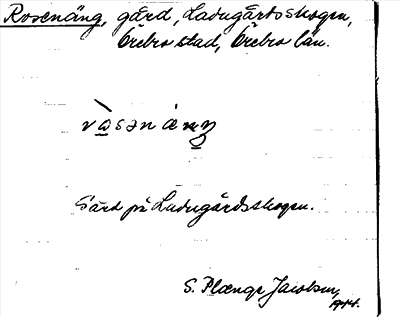 Rosenäng, gård, Ladugårdsskogen,
Örebro stad, Örebro län.
Gård på Ladugårdsskogen.
S. Plænge Jacobson,